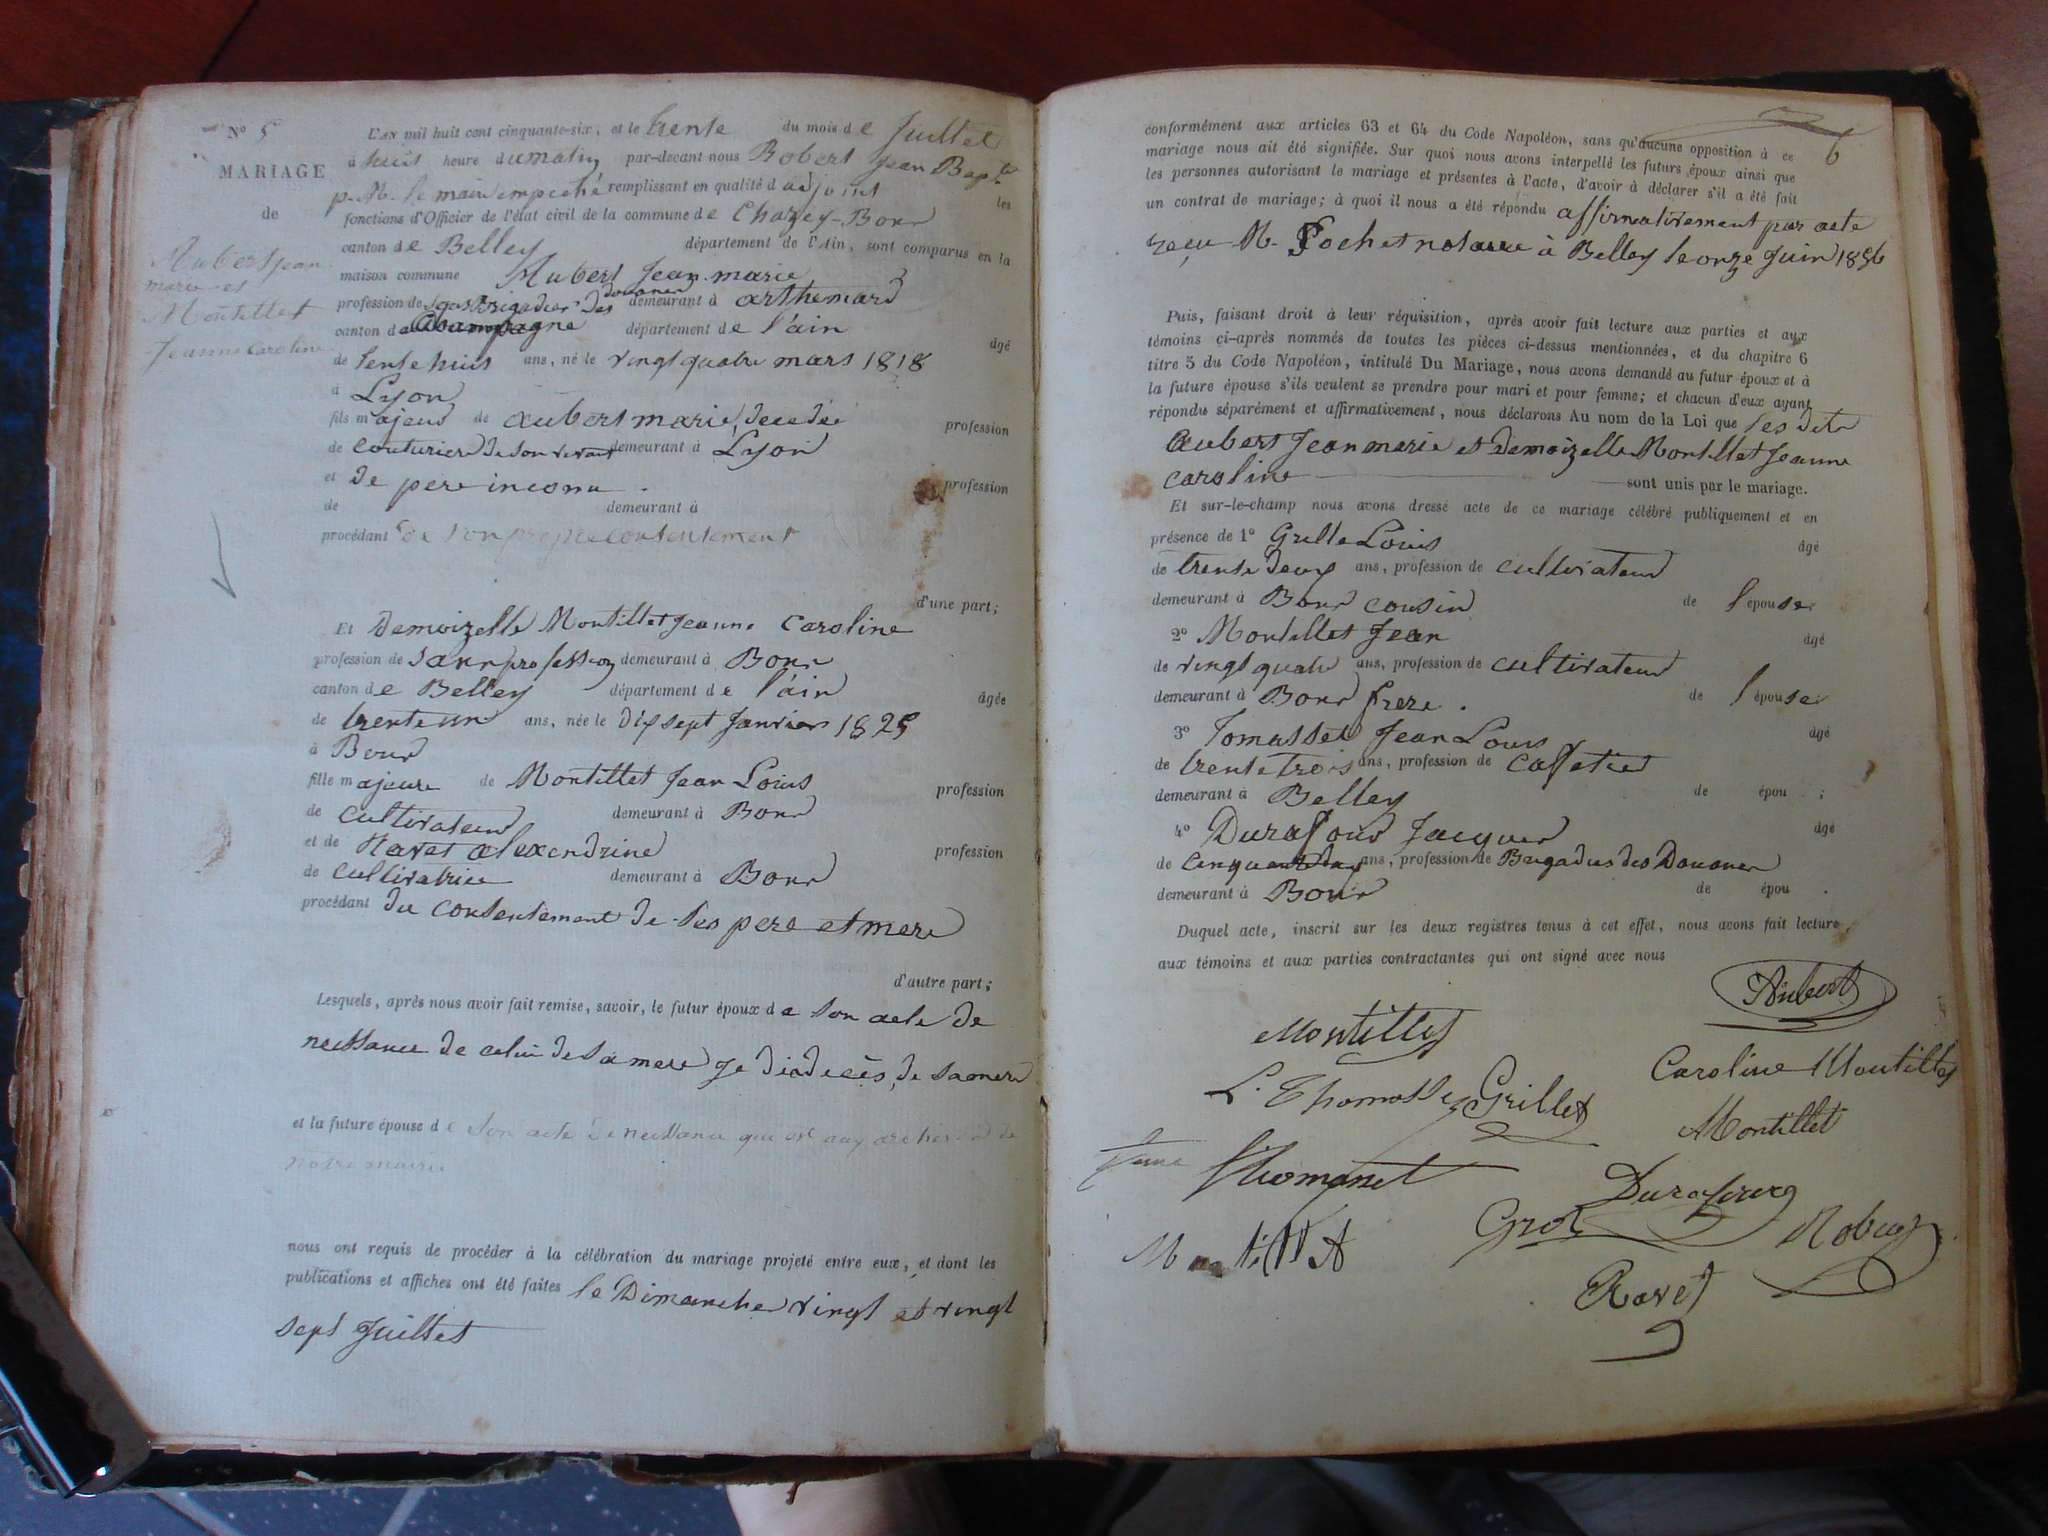 N° 5
MARIAGE
de
Aubert Jean
marie et
Montillet
Jeanne Caroline
L'AN mil huit cent cinquante-six, et le trente du mois de Juillet
à huit heure du matin par-devant nous Robert Jean Bapte
p. M. le maire empeché remplissant en qualité d adjoint les
fonctions d'Officier de l'état civil de la commune de Chazey-Bons
canton de Belley département de l'Ain, sont comparus en la
maison commune Aubert Jean marie
profession de sous Brigadier des douanes demeurant à arthemard
canton de Champagne département de l'ain âgé
de tente huit ans, né le vingt quatre mars 1818
à Lyon
fils majeur de aubert marie, decedée profession
de couturiere de son vivant demeurant à Lyon
et de pere inconu . profession
de demeurant à
procédant de son propre contentement
d'une part;
Et Demoizelle Montillet Jeanne Caroline
profession de sans profession demeurant à Bons
canton de Belley département de l'ain âgée
de trente un ans, née le dix sept Janvier 1825
à Bons
fille majeure de Montillet Jean Louis profession
de cultivateur demeurant à Bons
et de Ravet alexendrine profession
de cultivatrice demeurant à Bons
procédant du contentement de ses pere et mere
d'autre part;
Lesquels, après nous avoir fait remise, savoir, le futur époux de son acte de
neissance de celui de sa mere de decès, de sa mere
et la future épouse de son acte de neissance que est aux archives de
notre mairie
nous ont requis de procéder à la célébration du mariage projeté entre eux, et dont les
publications et affiches ont été faites le Dimanche vingt et vingt
sept Juillet
6
conformément aux articles 63 et 64 du Code Napoléon, sans qu'aucune opposition à ce
mariage nous ait été signifiée. Sur quoi nous avons interpellé les futurs époux ainsi que
les personnes autorisant le mariage et présentes à l'acte, d'avoir à déclarer s'il a été fait
un contrat de mariage; à quoi il nous a été répondu affirmativement par acte
reçu M. Fochet notaire à Belley le onze Juin 1856
Puis, faisant droit à leur réquisition, après avoir fait lecture aux parties et aux
témoins ci-après nommés de toutes les pièces ci-dessus mentionnées, et du chapitre 6
titre 5 du Code Napoléon, intitulé Du Mariage, nous avons demandé au futur époux et à
la future épouse s'ils veulent se prendre pour mari et pour femme; et chacun d'eux ayant
répondu séparément et affirmativement, nous déclarons Au nom de la Loi que les dits
Aubert Jean marie et Demoizelle Montillet Jeanne
caroline sont unis par le mariage.
Et sur-le-champ nous avons dressé acte de ce mariage célébré publiquement et en
présence de 1° Grille Louis âgé
de trente deux ans, profession de cultivateur
demeurant à Bons cousin de l'épouse
2° Montillet Jean âgé
de vingt quatre ans, profession de cultivateur
demeurant à Bons frere . de l'épouse
3° Tomasset Jean Louis âgé
de trente trois ans, profession de caffetier
demeurant à Belley de épou ;
4° Durafour Jacques âgé
de cinquante deux ans, profession de Brigadier des Douanes
demeurant à Bons de épou .
Duquel acte, inscrit sur les deux registres tenus à cet effet, nous avons fait lecture
aux témoins et aux parties contractantes qui ont signé avec nous
Aubert
Montillet
Caroline Montillet
L. Thomasset Grillet
Montillet
Thomasset
Durafour
Groz
Robert
Montillet
Ravet